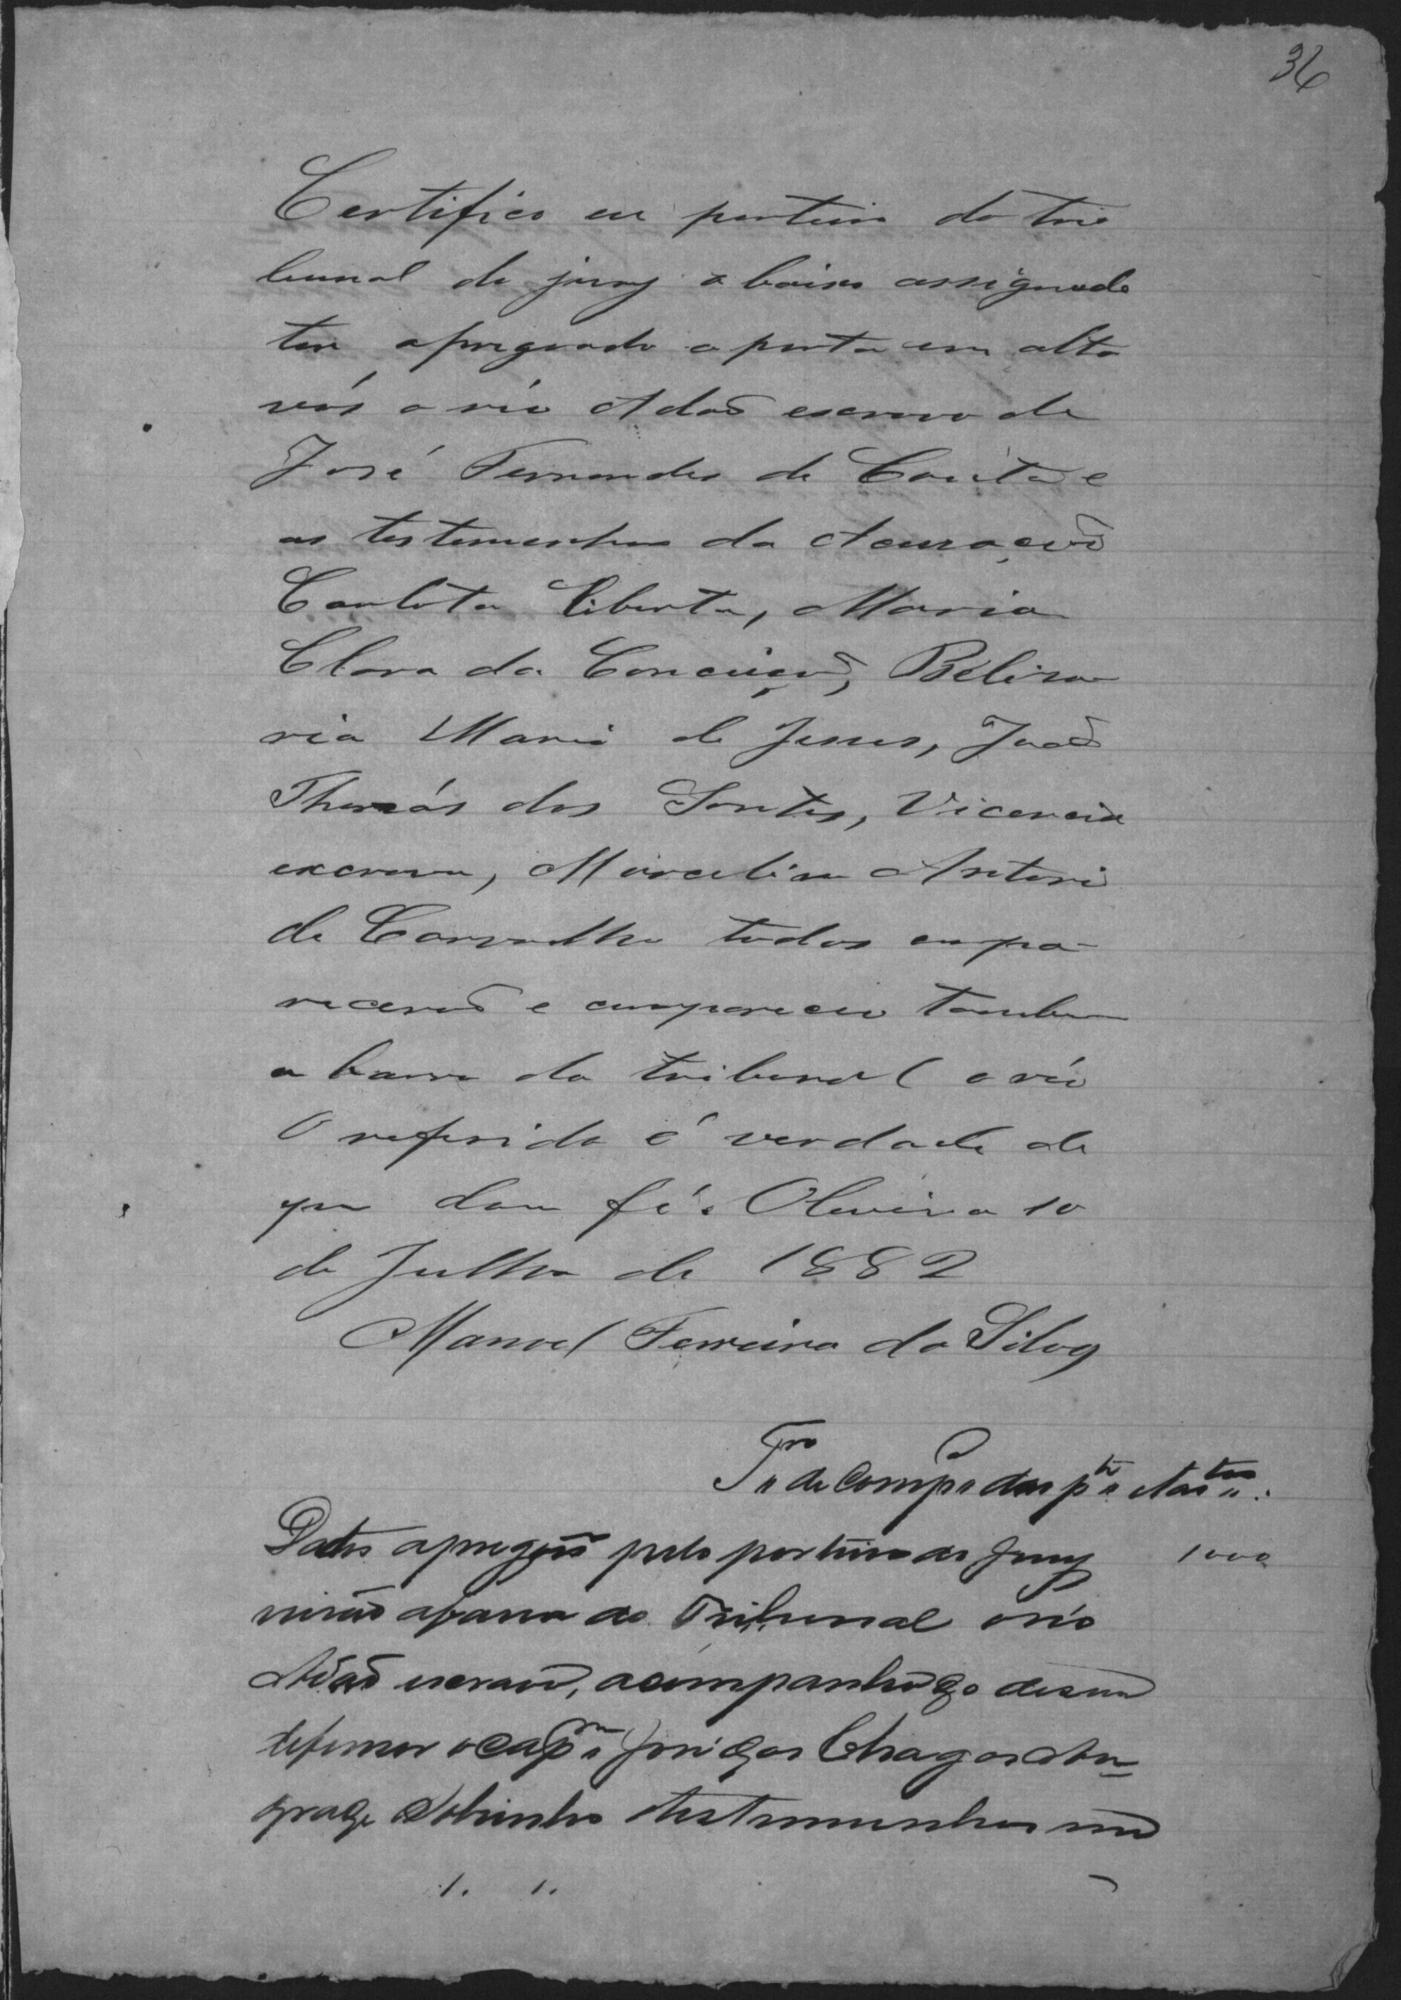 36
Certifico eu porteiro do tri
bunal do jury a baixo assignado
ter apregoado a porta em alta
vós o réo Adaõ escravo de
José Fernandes de Couto e
as testemunhas da Acuzaçaõ
Carlota Liberta, Maria
Clara da Conceiçaõ, Beliza
ria Maria de Jesus, Joaõ
Thomás dos Santos, Vicencia
escrava, Marcelino Antonio
de Carvalho todos compa-
receraõ e compareceu tambem
a barra do tribunal o réo
O referido é verdade de
que dou fé. Oliveira 10
de Julho de 1882
Manoel Ferreira da Silva
Tro de Comp. das ptes e tas
Dados apregões pelo porteiro do Jury 1000
viraõ a barra do Tribunal o réo
Adaõ escravo, acompanhado de seu
defensor o capm José das Chagas An-
drade Sobrinho testemunhas